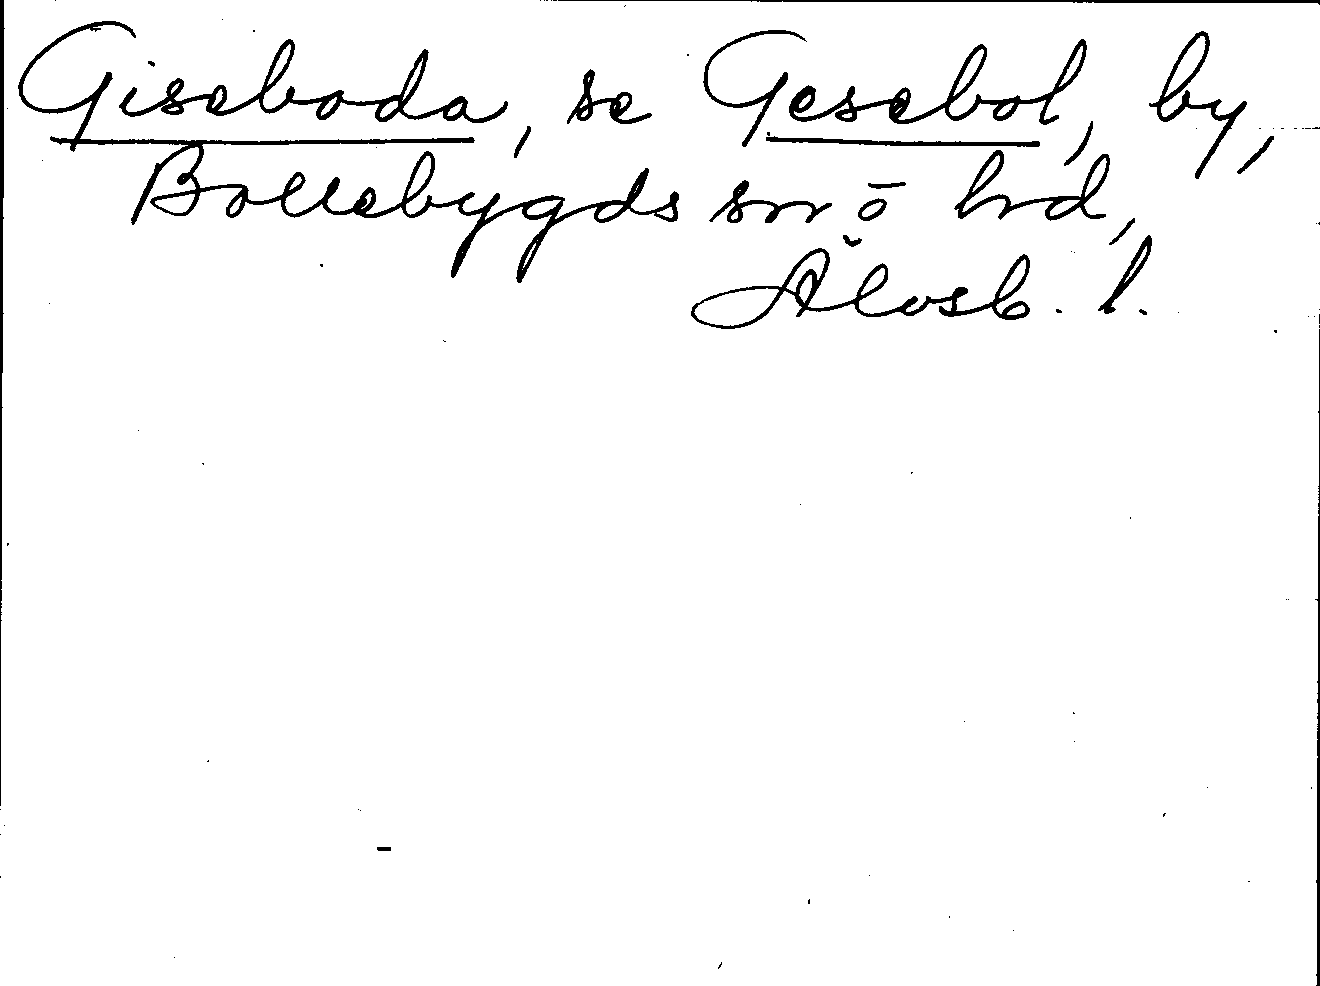 Giseboda, se Gesebol, by,
Bollebygds sn ō hd,
Älvsb. l.